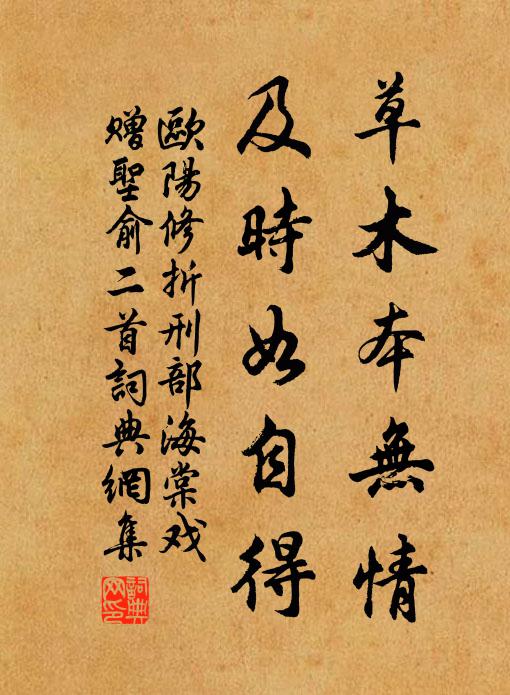 草木本無情
及時如自得
歐陽修折刑部海棠戏
贈聖俞二首詞典網集
詞典網印